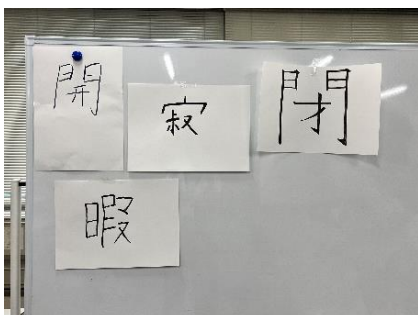 開
寂
閉
暇